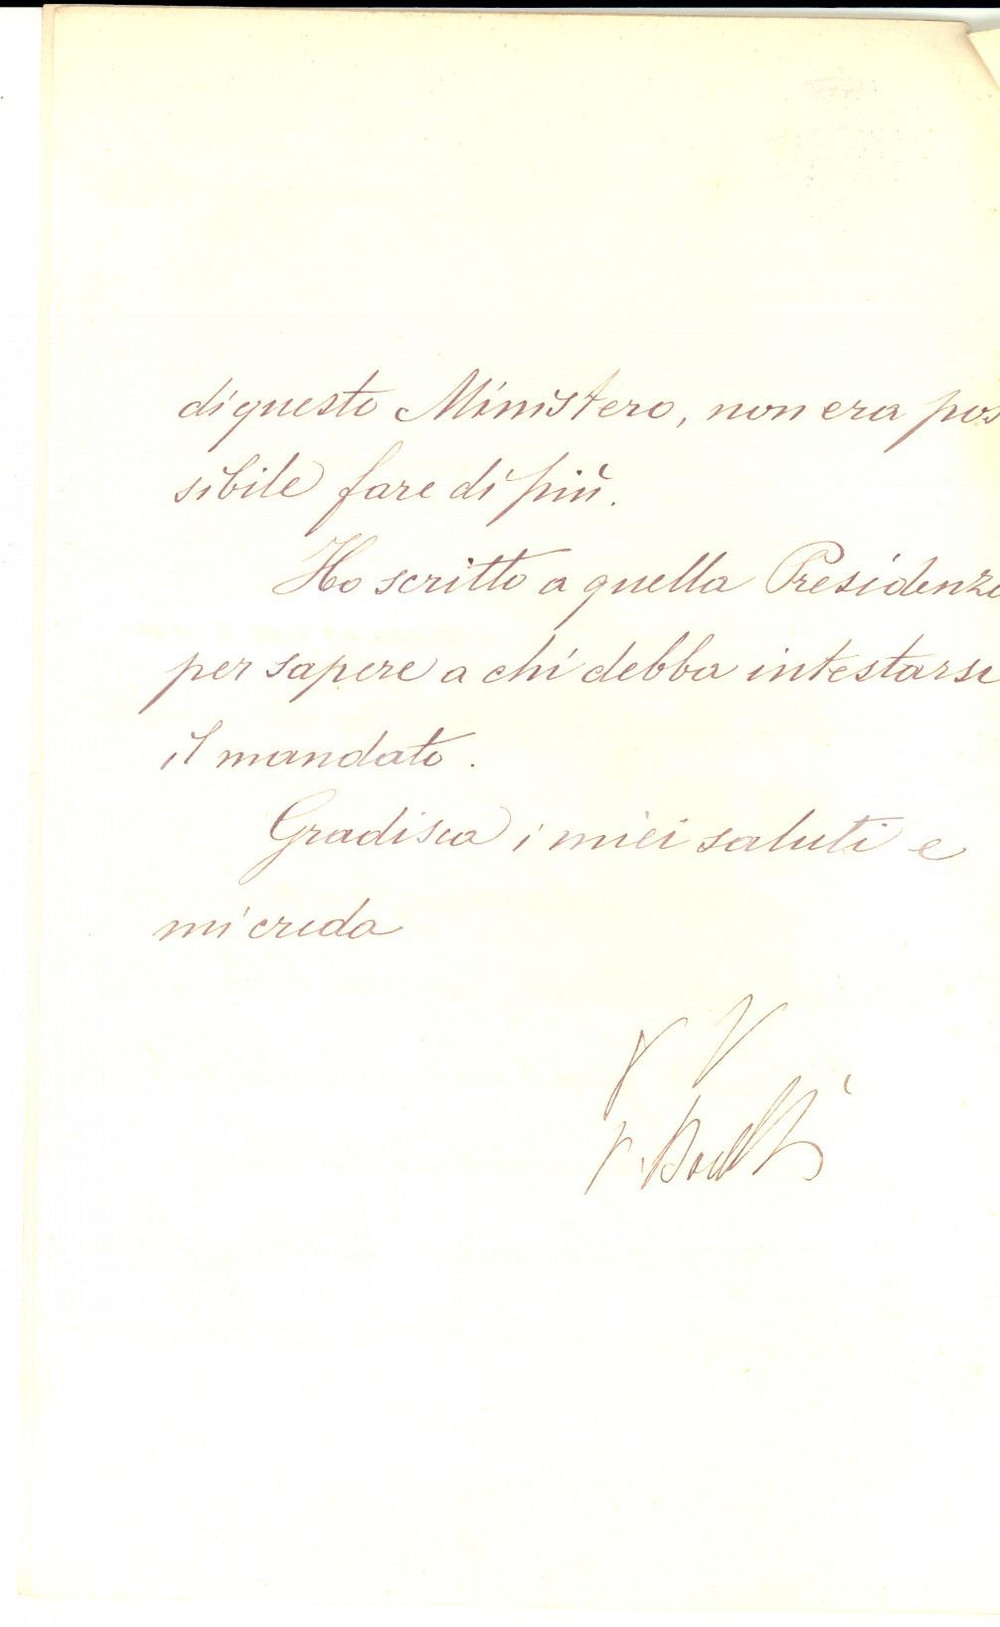 di questo Ministero, non era pos
sibile fare di più.
Ho scritto a quella Presidenza
per sapere a chi debba intestarsi
il mandato.
Gradisca i miei saluti e
mi creda